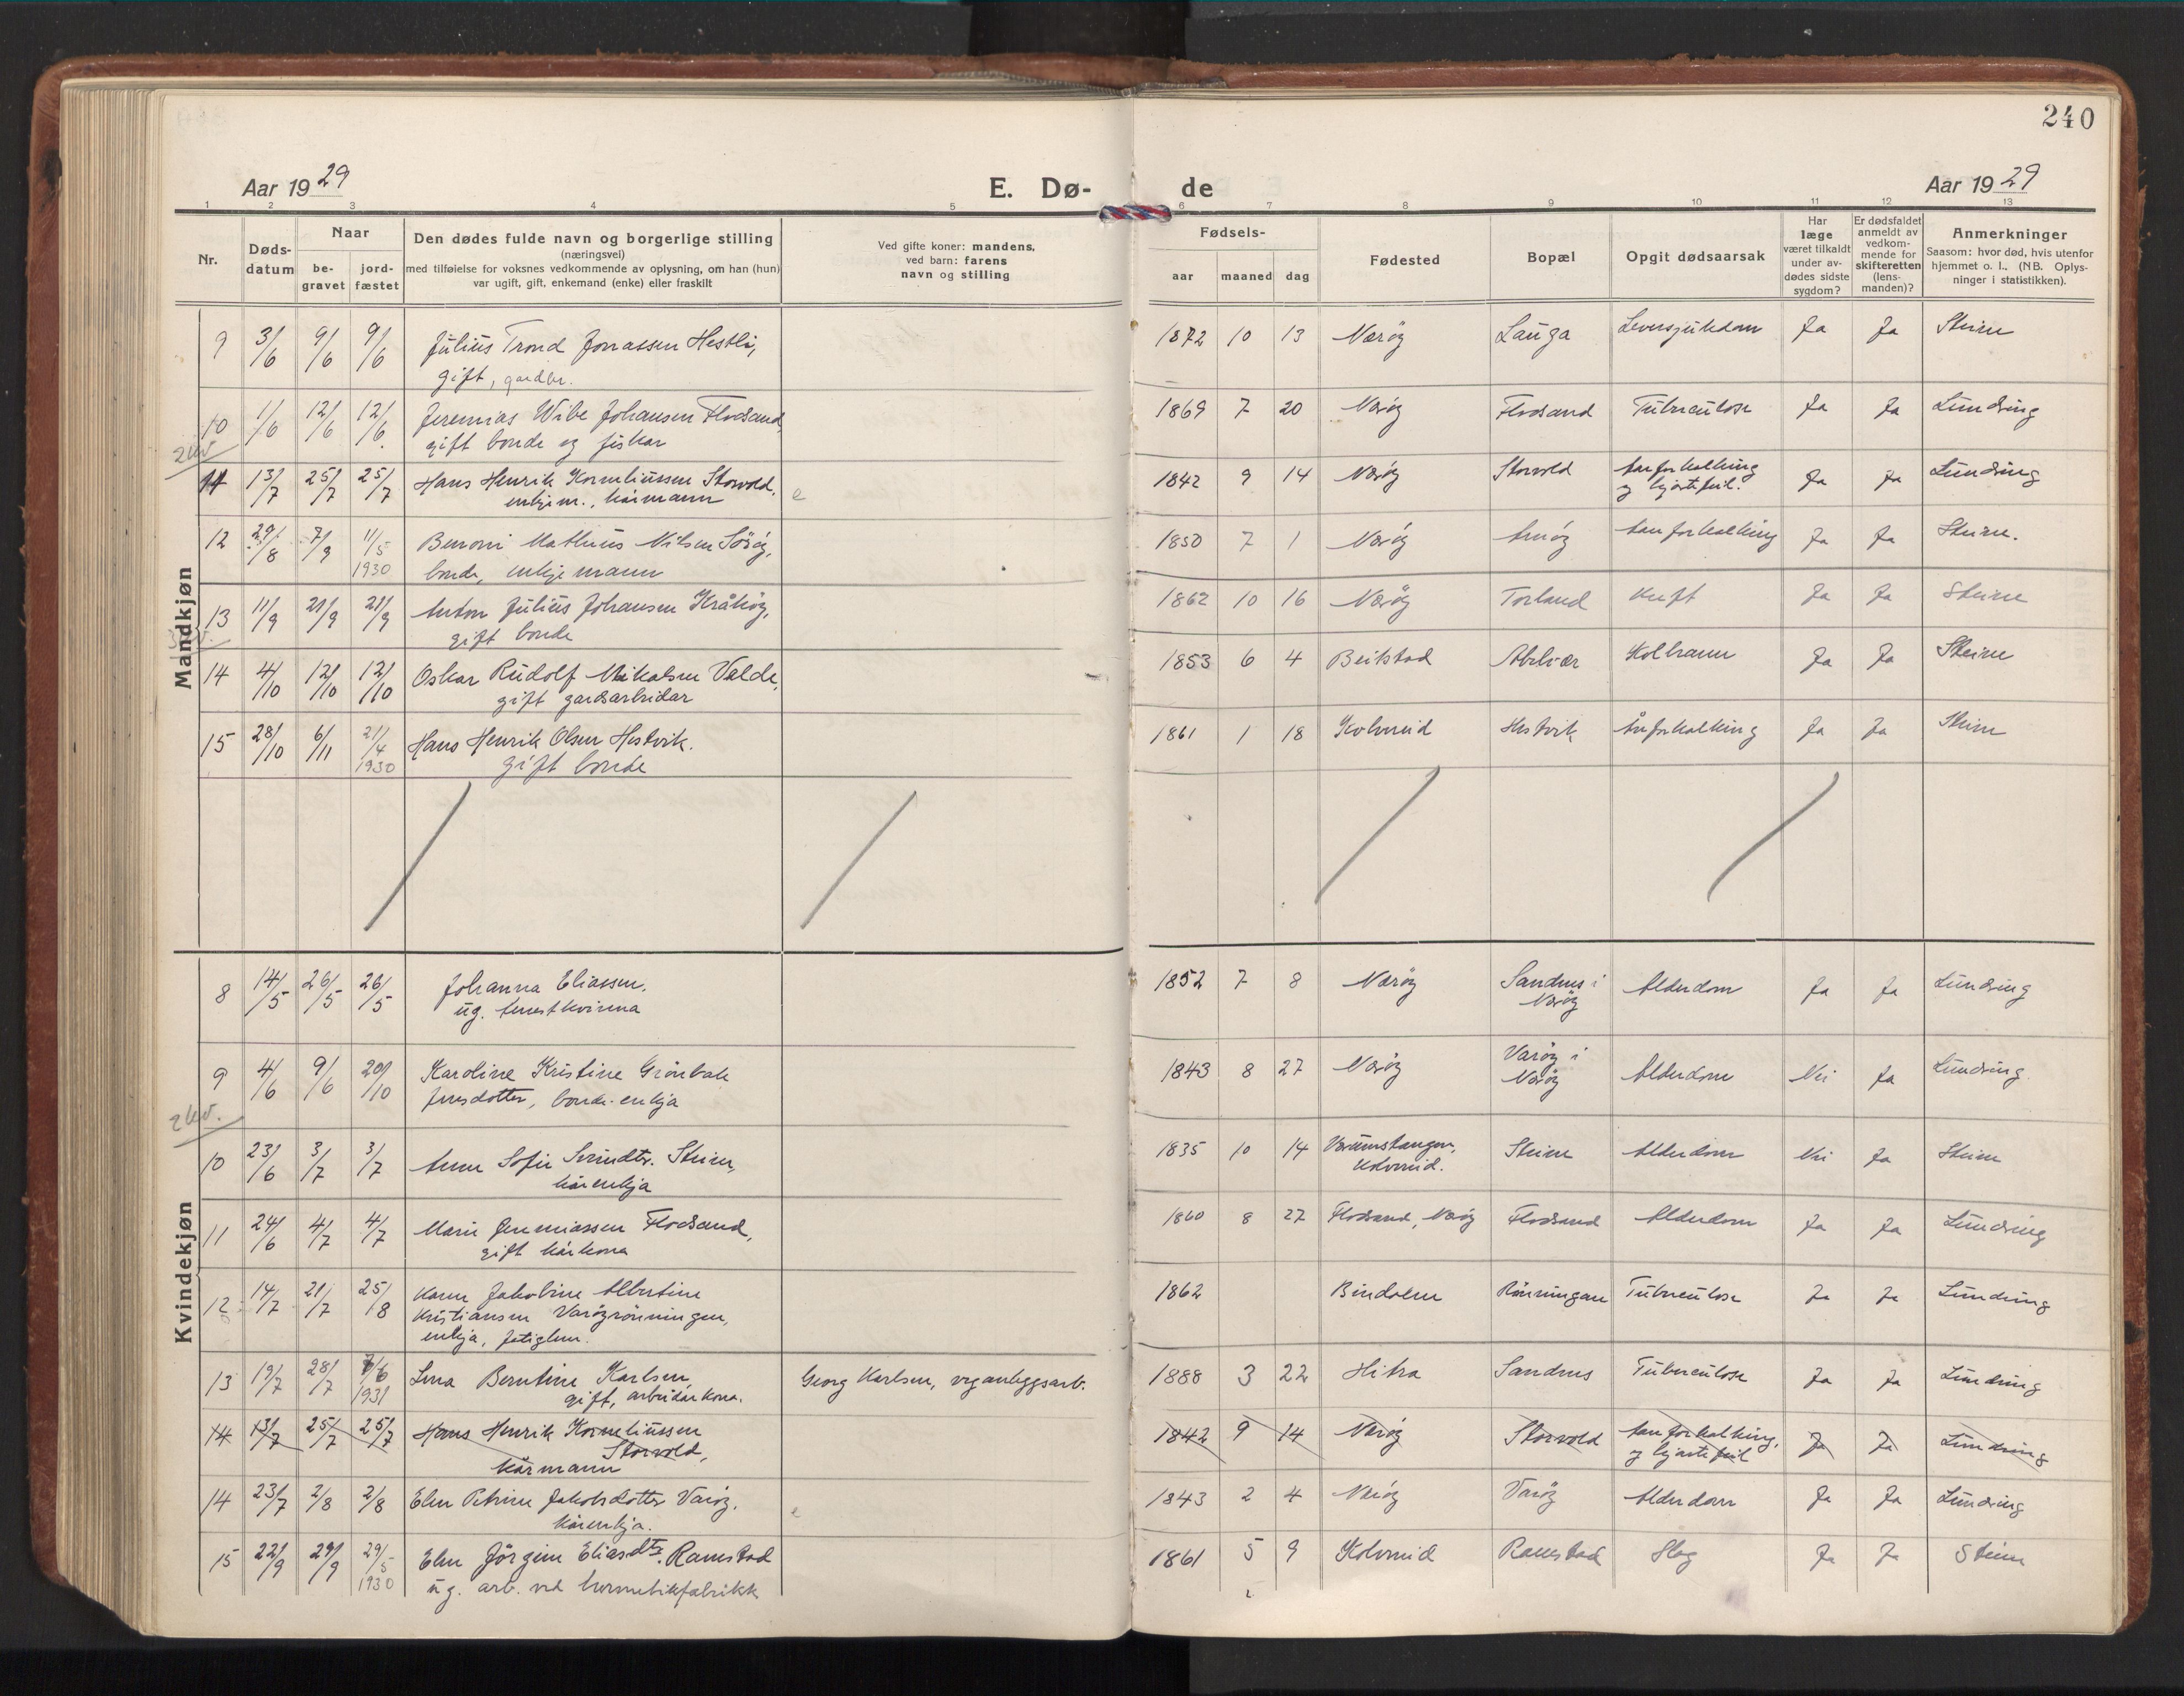 240
Aar 1929
E. Dø-
de
Aar 1929
1 2 3 4 5 6 7 8 9 10 11 12 13
Nr.
Døds-
datum
Naar
be-
gravet
jord-
fæstet
Den dødes fulde navn og borgerlige stilling
(næringsvei)
med tilføielse for voksnes vedkommende av oplysning, om han (hun)
var ugift, gift, enkemand (enke) eller fraskilt
Ved gifte koner: mandens,
ved barn: farens
navn og stilling
Fødsels-
aar maaned dag
Fødested
Bopæl
Opgit dødsaarsak
Har
læge
været tilkaldt
under av-
dødes sidste
sygdom?
Er dødsfaldet
anmeldt av
vedkom-
mende for
skifteretten
(lens-
manden)?
Anmerkninger
Saasom: hvor død, hvis utenfor
hjemmet o. l., (NB. Oplys-
ninger i statistikken).
Mandkjøn
9 3/6 9/6 9/6 Julius Trond Jonassen Hestli, 1872 10 13 Nærøy Lauga Leversjukdom Ja Ja Steine
gift, gardbr.
10 1/6 12/6 12/6 Jeremias Wibe Johansen Flosand, 1869 7 20 Nærøy Flosand Tuberculose Ja Ja Lundring
gift bonde og fiskar
2 kv.
11 13/7 25/7 25/7 Hans Henrik Korneliussen Storvold, e 1842 9 14 Nærøy Storvold Aarforkalking Ja Ja Lundring
enkjem., kårmann og hjartefeil.
12 29/8 7/9 11/5 1930 Benoni Mathias Nilsen Sørøy, 1850 7 1 Nærøy Arnøy Aarforkalking Ja Ja Steine.
bonde, enkjemann
13 11/9 21/9 21/9 Anton Julius Johansen Kråkøy, 1862 10 16 Nærøy Torland Kreft Ja Ja Steine
gift bonde
14 4/10 12/10 12/10 Oskar Rudolf Mikalsen Valde, 1853 6 4 Beitstad Abelvær Kolbrann Ja Ja Steine
gift gardsarbeidar
15 28/10 6/11 21/4 1930 Hans Henrik Olsen Hestvik. 1861 1 18 Kolvereid Hestvik Årforkalking Ja Ja Steine
gift bonde
Kvindekjøn
8 14/5 26/5 26/5 Johanna Eliassen, 1852 7 8 Nærøy Sandnes i Nærøy Alderdom Ja Ja Lundring
ug. tenestkvinna
9 4/6 9/6 20/10 Karoline Kristine Grönbak 1843 8 27 Nærøy Varøy i Nærøy Alderdom Nei Ja Lundring
Jensdotter, bonde-enkja
2 kv.
10 23/6 3/7 3/7 Anne Sofie Svendtr. Steine, 1835 10 14 Værumstangen, Kolvereid. Steine Alderdom Nei Ja Steine
kårenkja
11 24/6 4/7 4/7 Marie Jeremiassen Flosand, 1860 8 27 Flosand, Nærøy Flosand Alderdom Ja Ja Lundring
gift kårkona
12 14/7 21/7 25/8 Karen Jakobine Albertine 1862 Bindalen Rönningen Tuberculose Ja Ja Lundring
Kristiansen Varøyrönningen,
enkja, fatiglem.
13 19/7 28/7 7/6 1931 Lina Berntine Karlsen, Georg Karlsen, veganleggsarb. 1888 3 22 Hitra Sandnes Tuberculose Ja Ja Lundring
gift, arbeidarkona.
14 13/7 25/7 25/7 Hans Henrik Korneliussen 1842 9 14 Nærøy Storvold Aarforkalking, Ja Ja Lundring
Storvold, og hjartefeil
kårmann
14 23/7 2/8 2/8 Elen Petrine Jakobsdotter Varøy. e 1843 2 4 Nærøy Varøy Alderdom Ja Ja Lundring
kårenkja.
15 22/9 29/9 29/5 1930 Elen Jørgine Eliasdtr. Ramstad 1861 5 9 Kolvereid Ramstad Slag Ja Ja Steine
ug. arb. ved hermetikfabrikk